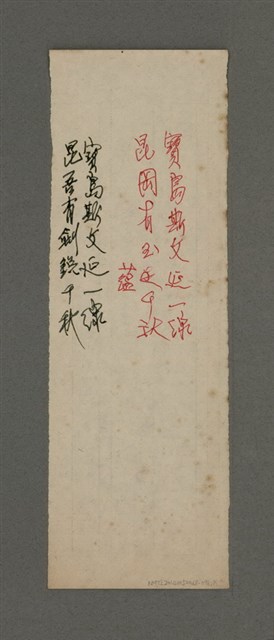 寶島斯文延一線
昆岡有玉足千秋
蘊
寶島斯文延一線
昆吾有劍銳千秋